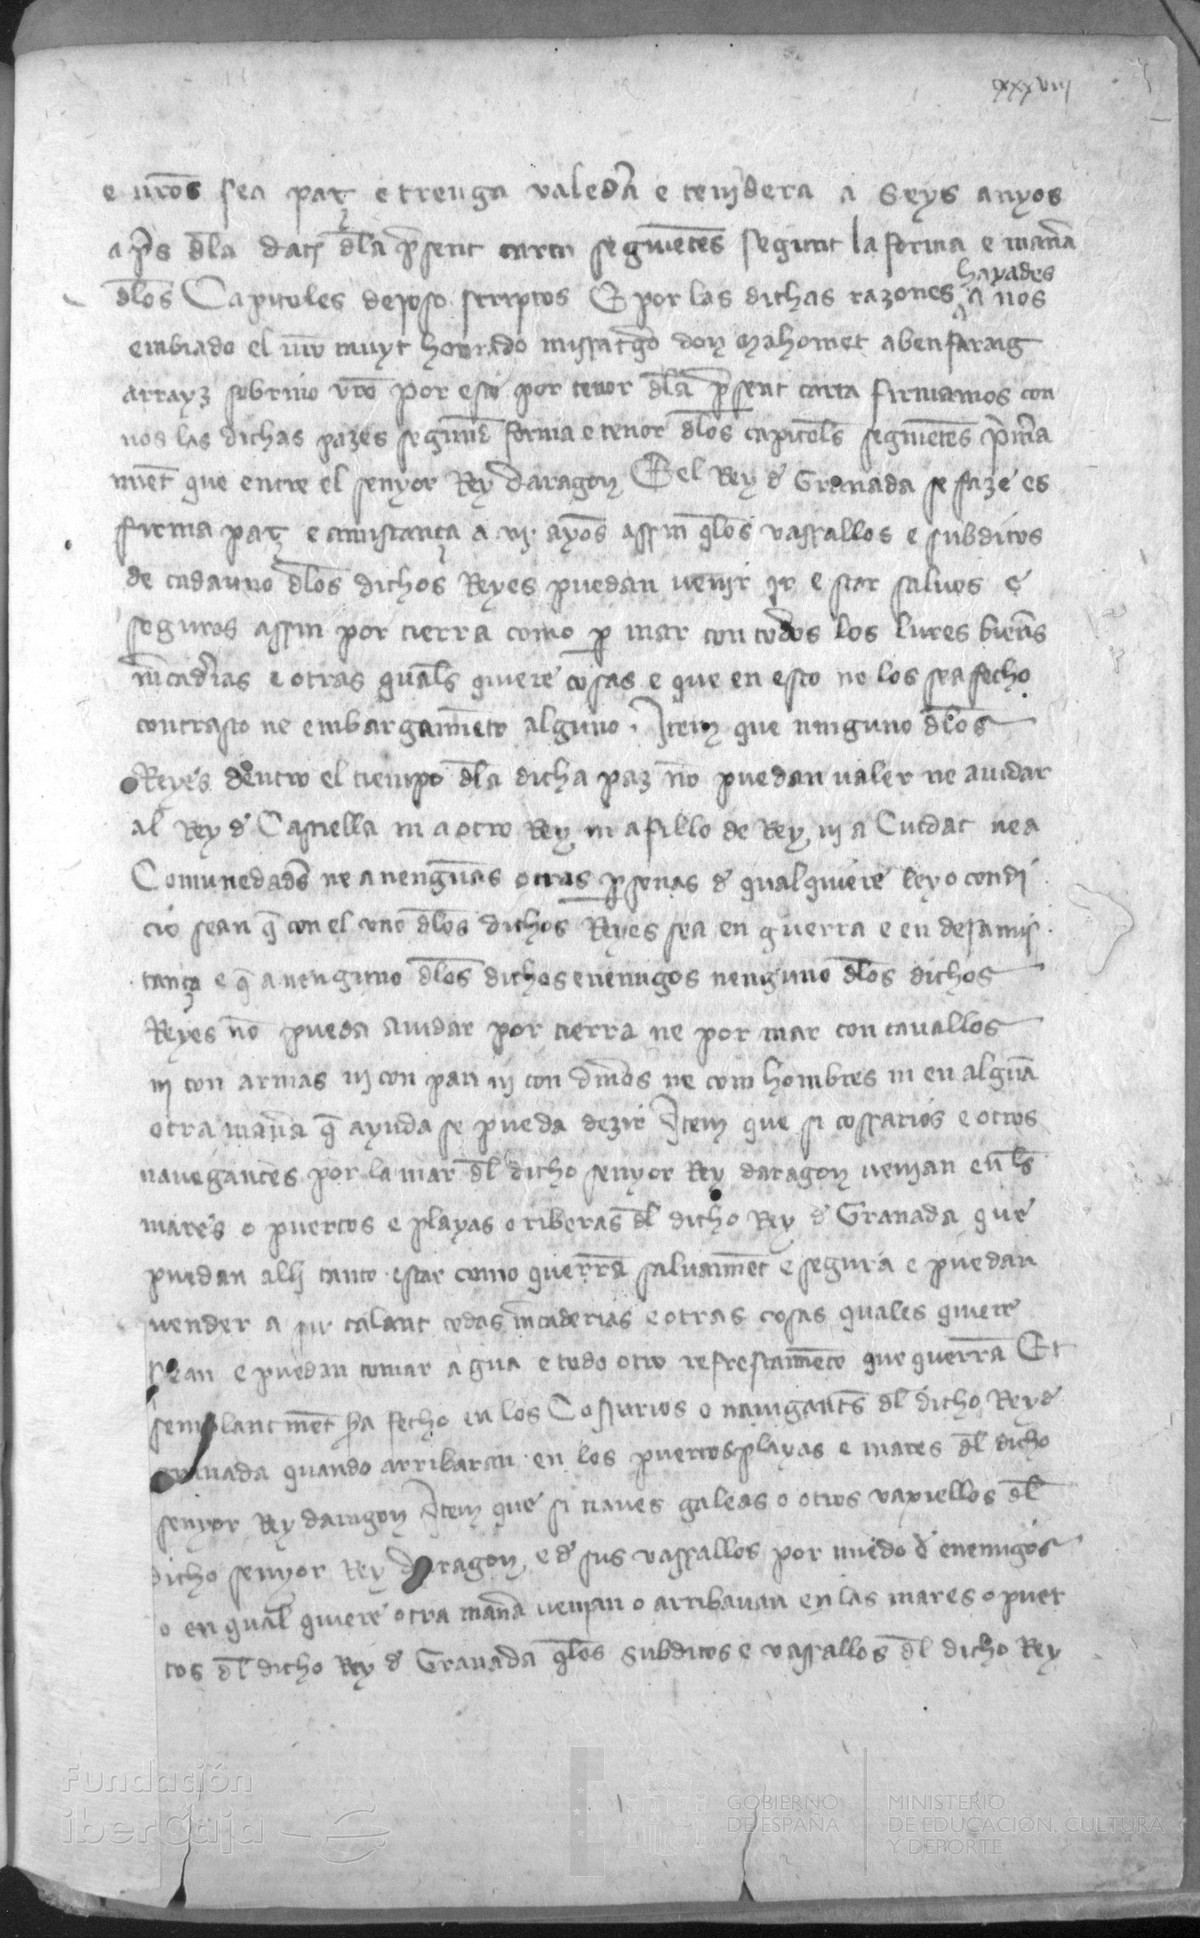 xxxviii
e vr̃os sea patz e treuga valedr̃a e tenidera a seys anyos
apr̃s dl̃a dat̃ dl̃a pr̃sent carta seguiẽtes segunt la forma e manr̃a
dl̃os Capitoles dejoso scriptos E por las dichas razones hayades a nos
embiado el vr̃o muyt honrado missatgr̃o don Mahomet abenfaraig
arrayz sobrino vr̃o por esto por tenor dl̃a pr̃sent carta firmamos con
vos las dichas pazes segund forma e tenor dl̃os capitol̃s seguiẽtes pr̃imr̃a
miẽt que entre el senyor Rey Daragon E el Rey d̃ Granada se faze es
firma patz e amistança a vj. ayños assin ql̃os vassallos e subditos
de cadauno dl̃os dichos Reyes puedan venir yr e star salvos e
seguros assin por tierra como p̱ mar con todos los lures biẽns
m̃cadr̃ias e otras qual̃s quiere cosas e que en esto no los sea fecho
contrasto ne embargamiẽto alguno. Item que ninguno dl̃os
Reyes dentro el tiempo dl̃a dicha paz nõ puedan valer ne aiudar
al Rey d̃ Castiella ni a otro Rey ni a fillo de Rey nj a Ciudat ne a
Comunedadẽs ne a nengũas otras p̱sonas d̃ qual quiere ley o condi
cio sean q̃ con el uno dl̃os dichos Reyes sea en guerra e en desamis
tança e q̃ a nenguno dl̃os dichos enemigos nenguno dl̃os dichos
Reyes nõ pueda aiudar por tierra ne por mar con cavallos
nj con armas nj con pan nj con dinr̃os ne com hombres ni en algũa
otra manr̃a q̃ ayuda se pueda dezir Item que si cossarios e otros
navegantes por la mar dl̃ dicho senyor Rey daragon venian en lẽs
mares o puertos e playas o riberas dl̃ dicho Rey d̃ Granada que
puedan allj tanto estar como querrã salvamẽt e segura e puedan
vender a su talant todas m̃caderias e otras cosas quales quiere
sean e puedan tomar agua e todo otro refrescamiẽto que querrã Et
semblantmẽt sia fecho en los Cossarios o navigantẽs dl̃ dicho Rey d̃
Granada quando arribaran en los puertos playas e mares dl̃ dicho
senyor Rey daragon Item que si naves galeas o otros vaxiellos dl̃
dicho senyor Rey daragon e d̃ sus vassallos por miedo d̃ enemigos
o en qual quiere otra manr̃a venian o arribavan en las mares o puer
tos dl̃ dicho Rey d̃ Granada ql̃os subditos e vassallos dl̃ dicho Rey
Fundación
iberCaja
GOBIERNO
DE ESPAÑA
MINISTERIO
DE EDUCACIÓN, CULTURA
Y DEPORTE